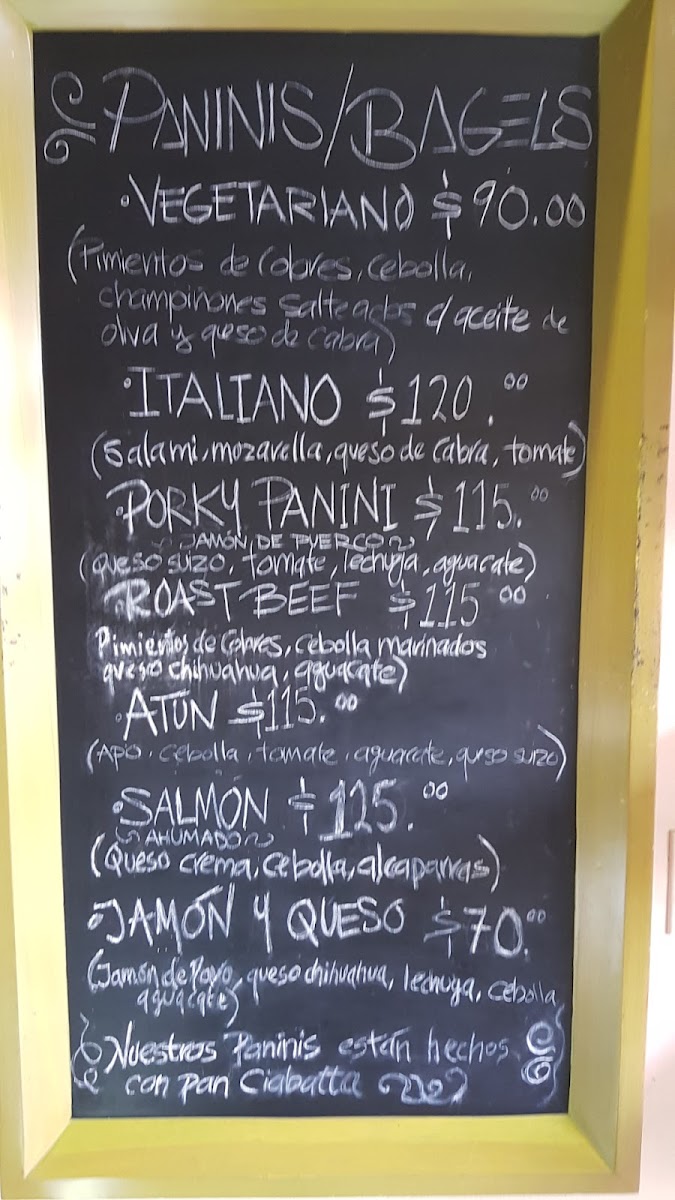 PANINIS/BAGELS
·VEGETARIANO $90.00
(Pimientos de Colores, cebolla,
champiñones salteados c/ aceite de
oliva y queso de cabra)
·ITALIANO $120.00
(Salami, mozarella, queso de Cabra, tomate)
·PORKY PANINI $115.00
JAMÓN DE PUERCO
(queso suizo, tomate, lechuga, aguacate)
·ROAST BEEF $115 00
Pimientos de Colores, cebolla marinados
queso chihuahua, aguacate)
·ATÚN $115.00
(Apio, cebolla, tomate, aguacate, queso suizo)
·SALMÓN $125.00
AHUMADO
(Queso crema, Cebolla, alcaparras)
·JAMÓN Y QUESO $70.00
(Jamón de Pavo, queso chihuahua, lechuga, cebolla
aguacate)
Nuestros Paninis están hechos
con pan Ciabatta